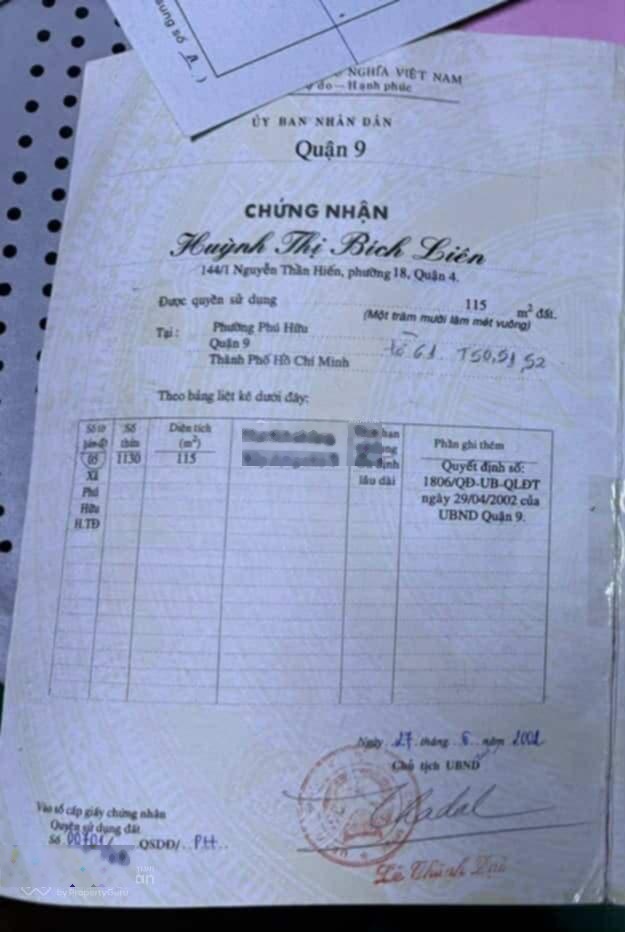 sung số
NGHĨA VIỆT NAM
do — Hạnh phúc
ỦY BAN NHÂN DÂN
Quận 9
CHỨNG NHẬN
Huỳnh Thị Bích Liên
144/1 Nguyễn Thần Hiến, phường 18, Quận 4.
Được quyền sử dụng 115 m² đất.
(Một trăm mười lăm mét vuông)
Tại : Phường Phú Hữu
Quận 9
Thành Phố Hồ Chí Minh
tờ 61. T50,51,52
Theo bảng liệt kê dưới đây:
Số tờ bản đồ
Số thửa
Diện tích (m²)
Phần ghi thêm
05 1130 115
Xã
Phú
Hữu
H.TĐ
lâu dài
Quyết định số:
1806/QĐ-UB-QLĐT
ngày 29/04/2002 của
UBND Quận 9.
Ngày 27 tháng 6 năm 2002
Chủ tịch UBND
Vào sổ cấp giấy chứng nhận
Quyền sử dụng đất
Số 00701/ QSDĐ/ PH
Lê Thành Đại
by PropertyGuru